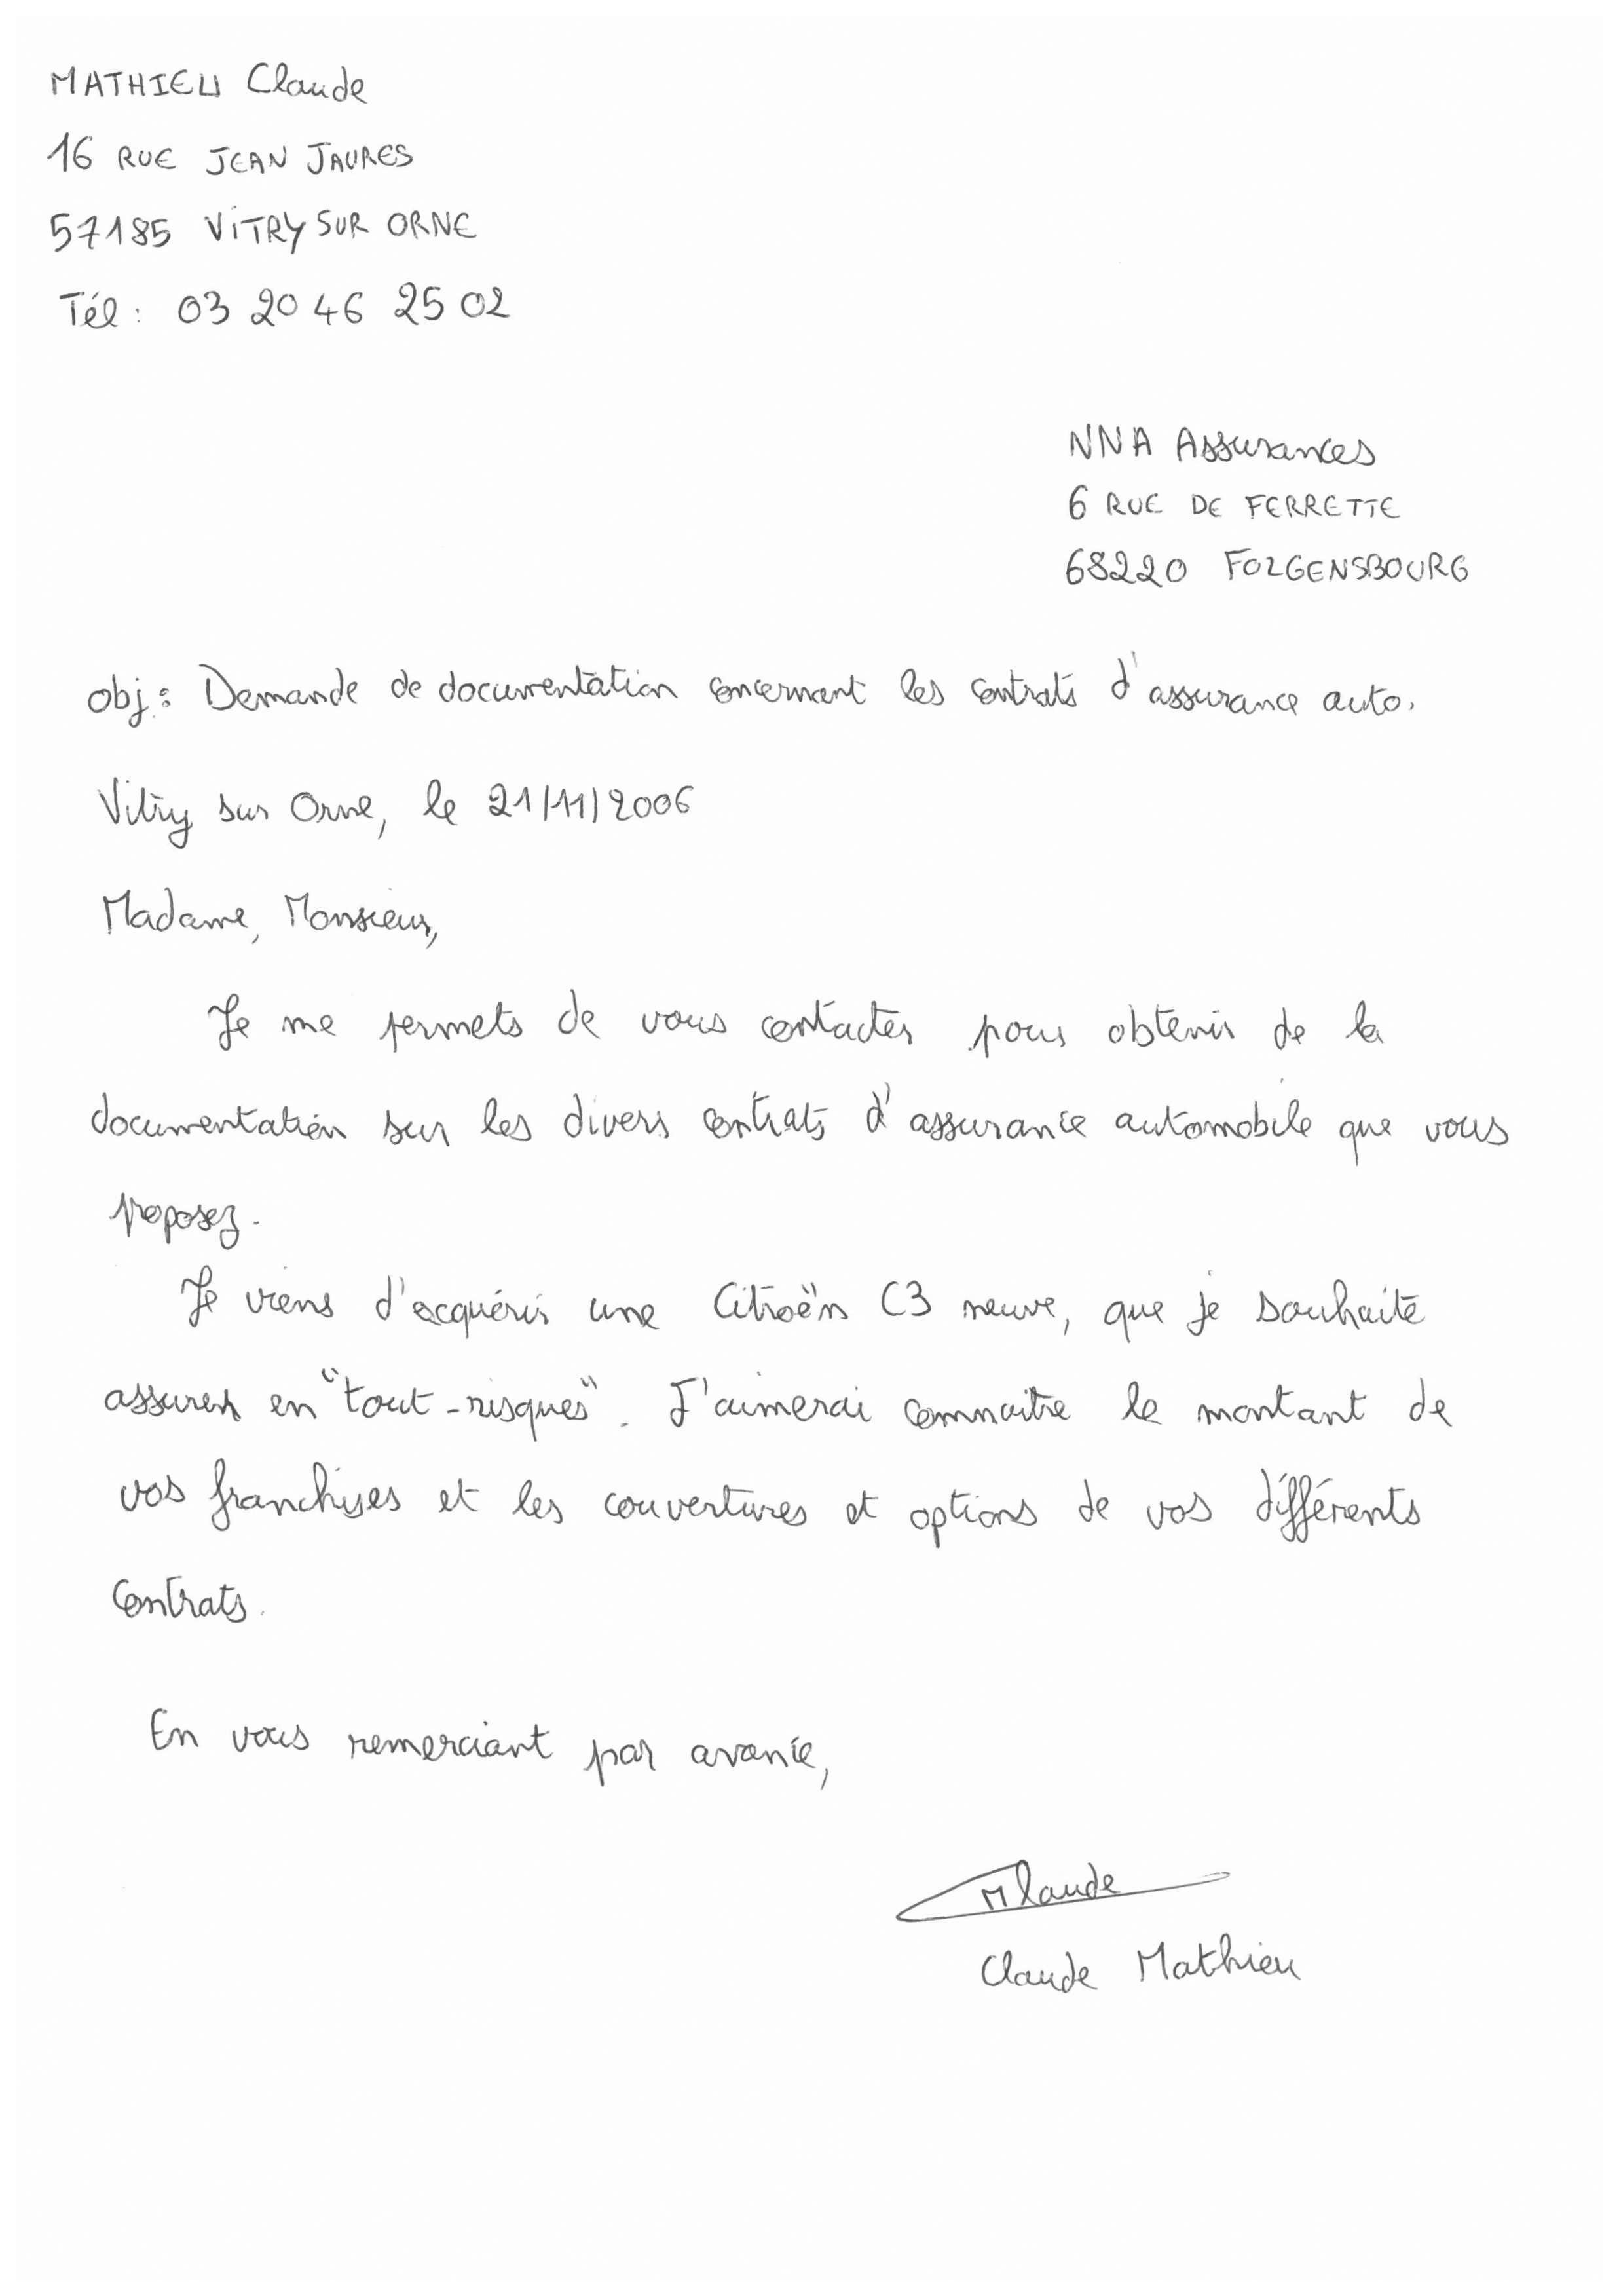 MATHIEU Claude
16 RUE JEAN JAURES
57185 ViTRY SUR ORNE
Tél : 03 20 46 25 02
NNA Assurances
6 RUE DE FERRETTE
68220 FOLGENSBOURG
obj : Demande de documentation concernant les contrats d'assurance auto.
Vitry sur Orne, le 21/11/2006
Madame, Monsieur,
Je me permets de vous contacter pour obtenir de la
documentation sur les divers contrats d'assurance automobile que vous
proposez.
Je viens d'acquérir une Citroën C3 neuve, que je souhaite
assurer en "tout-risques". J'aimerai connaitre le montant de
vos franchises et les couvertures et options de vos différents
contrats.
En vous remerciant par avance,
Claude
Claude Mathieu